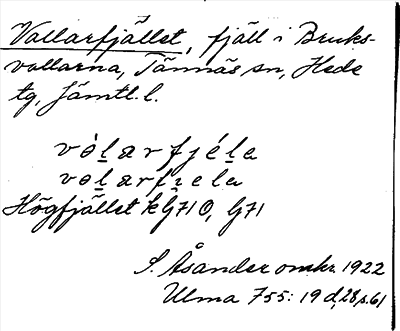 Vallarfjället, fjäll i Bruks-
vallarna, Tännäs sn, Hede
tg, Jämtl. l.
vòḻarfjéḻa
vɵḻarfɪ̯ela
Högfjället kG71O, G71
S. Åsander omkr. 1922
Ulma 755: 19 d, 28, s. 61